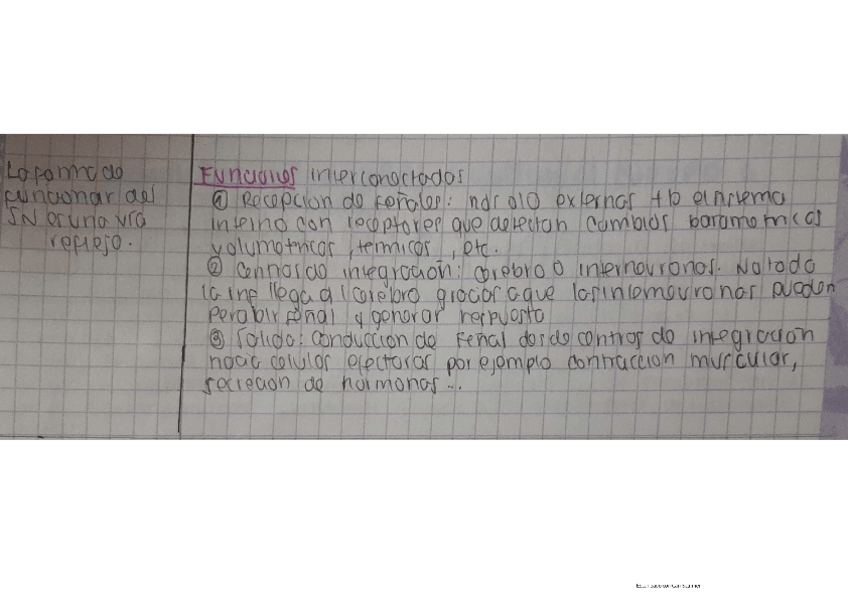 La forma de
funcionar del
SN es una vía
refleja.
Funciones interconectadas
① Recepción de señales: no solo externas tb en sistema
interno con receptores que detectan cambios
volumetricos, termicos, etc.
② Centros de integración: cerebro o interneuronas. No toda
la inf llega al cerebro gracias a que las interneuronas pueden
percibir señal y generar respuesta
③ Salida: conducción de señal desde centros de integración
hacia celulas efectoras por ejemplo contracción muscular,
secreción de hormonas...